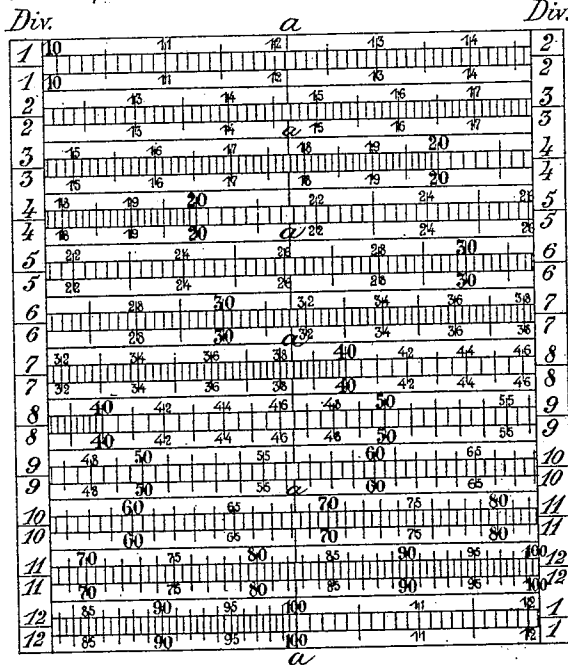 Div. a Div.
10 11 12 13 14
1 2
1 2
10 11 12 13 14
13 14 15 16 17
2 3
2 3
13 14 a 15 16 17
15 16 17 18 19 20
3 4
3 4
15 16 17 18 19 20
18 19 20 22 24 26
4 5
4 5
18 19 20 a 22 24 26
22 24 26 28 30
5 6
5 6
22 24 26 28 30
28 30 32 34 36 38
6 7
6 7
28 30 a 32 34 36 38
32 34 36 38 40 42 44 46
7 8
7 8
32 34 36 38 40 42 44 46
40 42 44 46 48 50 55
8 9
8 9
40 42 44 46 48 50 55
48 50 55 60 65
9 10
9 10
48 50 55 a 60 65
60 65 70 75 80
10 11
10 11
60 65 70 75 80
70 75 80 85 90 95 100
11 12
11 12
70 75 80 85 90 95 100
85 90 95 100 11 12
12 1
12 1
85 90 95 100 11 12
a